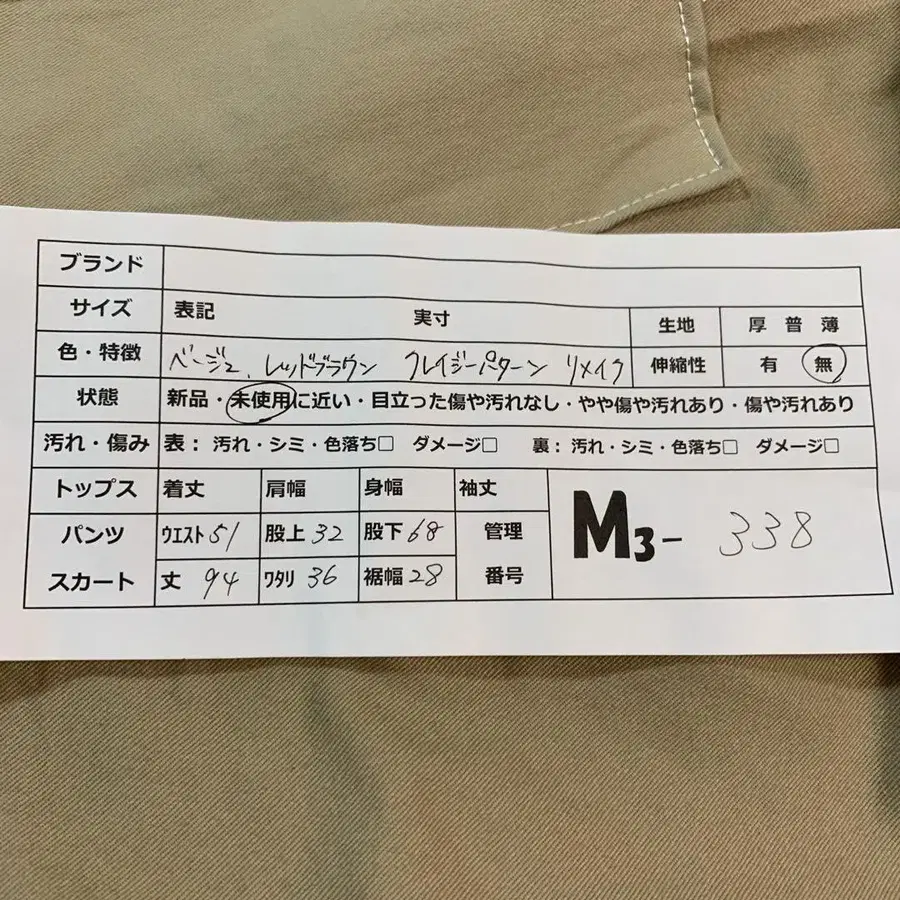 ブランド
サイズ 表記 実寸 生地 厚 普 薄
色・特徴 ベージュ、レッドブラウン クレイジーパターン リメイク 伸縮性 有 無
状態 新品・未使用に近い・目立った傷や汚れなし・やや傷や汚れあり・傷や汚れあり
汚れ・傷み 表: 汚れ・シミ・色落ち□ ダメージ□ 裏: 汚れ・シミ・色落ち□ ダメージ□
トップス 着丈 肩幅 身幅 袖丈
パンツ ウエスト 51 股上 32 股下 68 管理
スカート 丈 94 ワタリ 36 裾幅 28 番号
M3- 338